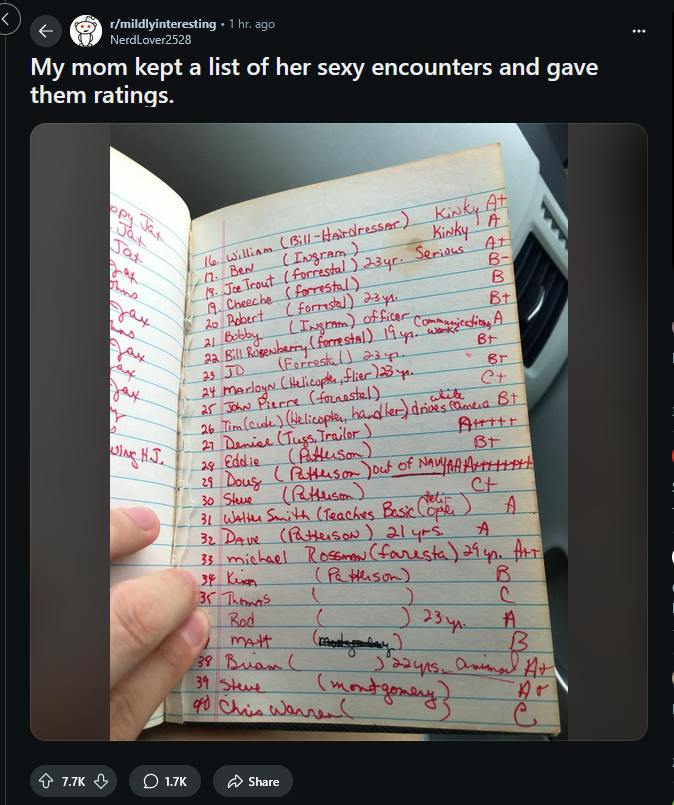 r/mildlyinteresting • 1 hr. ago
NerdLover2528
My mom kept a list of her sexy encounters and gave
them ratings.
ppy Jax
Jax
Jax
Jax
Jax
Jax
Jax
Jax
wing H.J.
16. William (Bill-Hairdresser) Kinky A+
17. Ben (Ingram) Kinky A
18. Joe Trout (forrestal) 23 yr. Serious A+
19. Cheeche (forrestal) B-
20 Robert (forrestal) 23 yr. B
21 Bobby (Ingram) officer B+
22 Bill Rosenbarry (forrestal) 19 yr. Communications works A
23 JD (Forrestal) 23 yr. B+
24 Marloyn (Helicopter, flier) 23 yr. B+
25 John Pierre (forrestal) C+
26 Tim (cute) (Helicopter, handler) drives white Camera B+
27 Denise (Tugs, Trailor) A+++++
28 Eddie (Patterson) B+
29 Doug (Patterson) out of NAVY
30 Steve (Patterson) C+
31 Walter Smith (Teaches Basic) A
32 Dave (Patterson) 21 yrs. A
33 michael Rossman (faresta) 29 yr. A++
34 (Patterson) B
35 Thomas ( ) C
Rod ( ) 23 yr. A
Matt ( ) B
38 Brian ( ) 22 yrs. animal A+
39 Steve (montgomery) A+
40 Chris Warren ( ) C
7.7K 1.7K Share